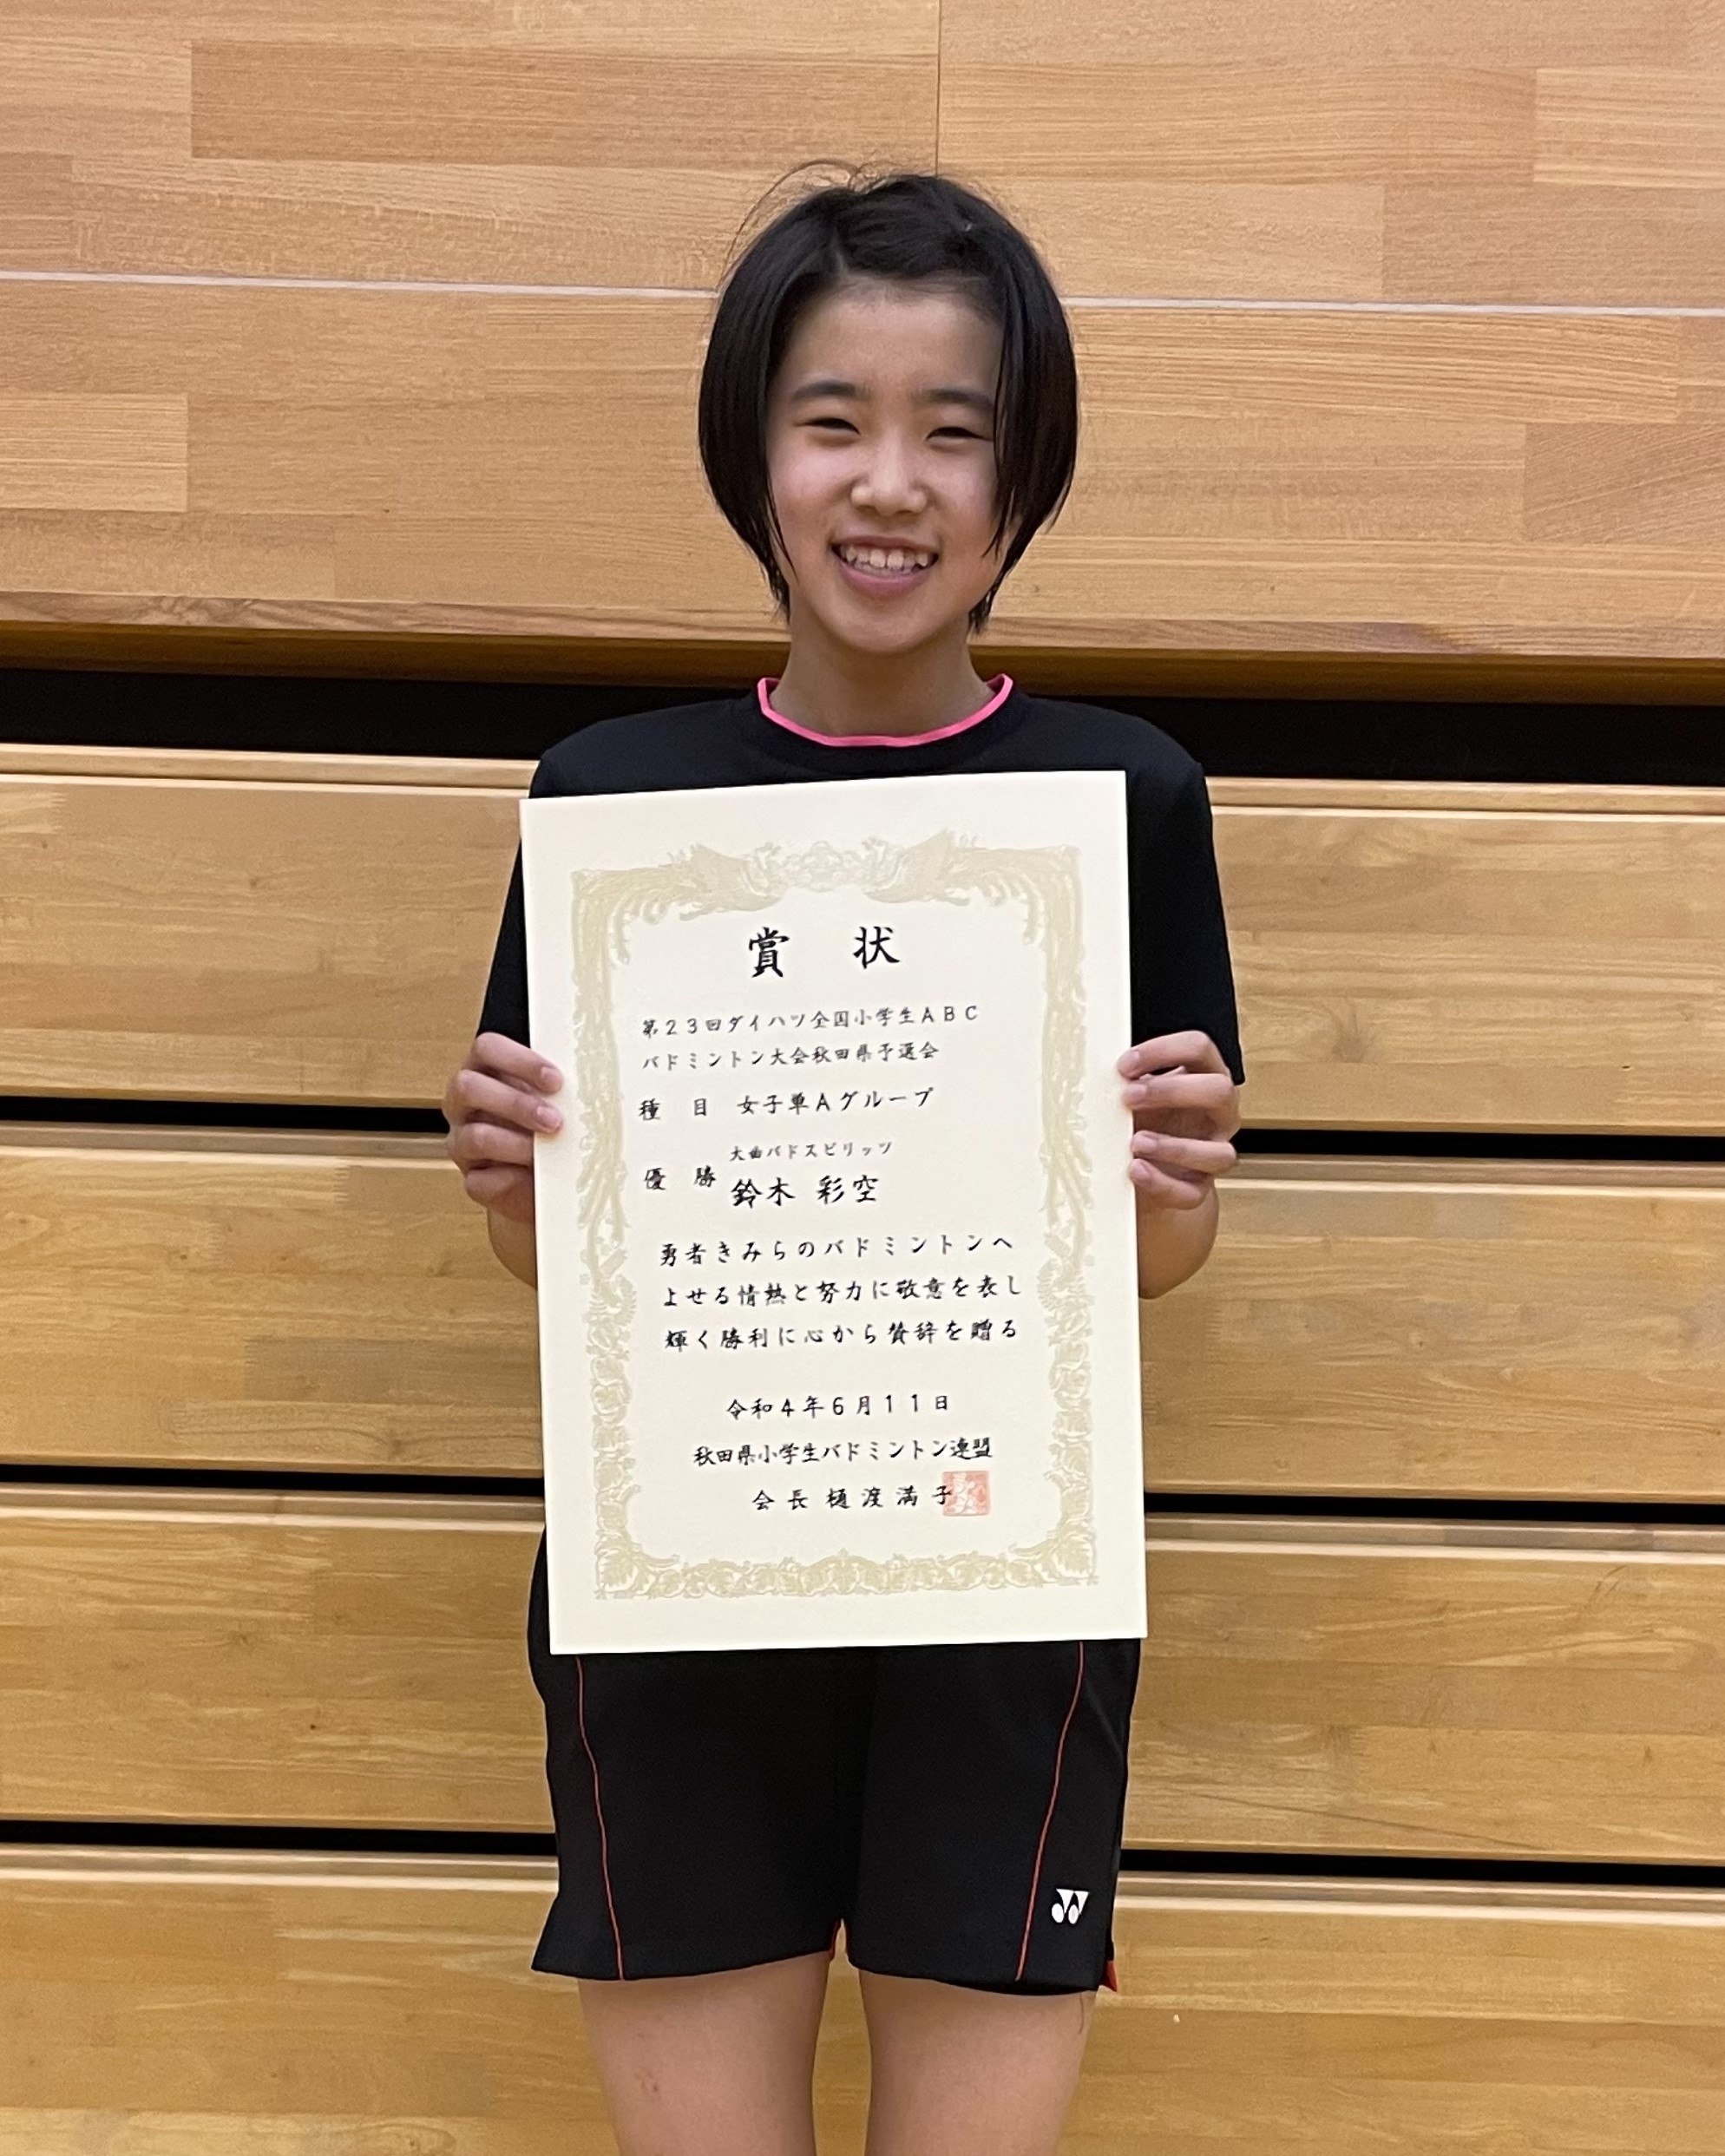 賞状
第23回ダイハツ全国小学生ABC
バドミントン大会秋田県予選会
種目 女子単Aグループ
大曲バドスピリッツ
優勝 鈴木 彩空
勇者きみらのバドミントンへ
よせる情熱と努力に敬意を表し
輝く勝利に心から賛辞を贈る
令和4年6月11日
秋田県小学生バドミントン連盟
会長 樋渡満子